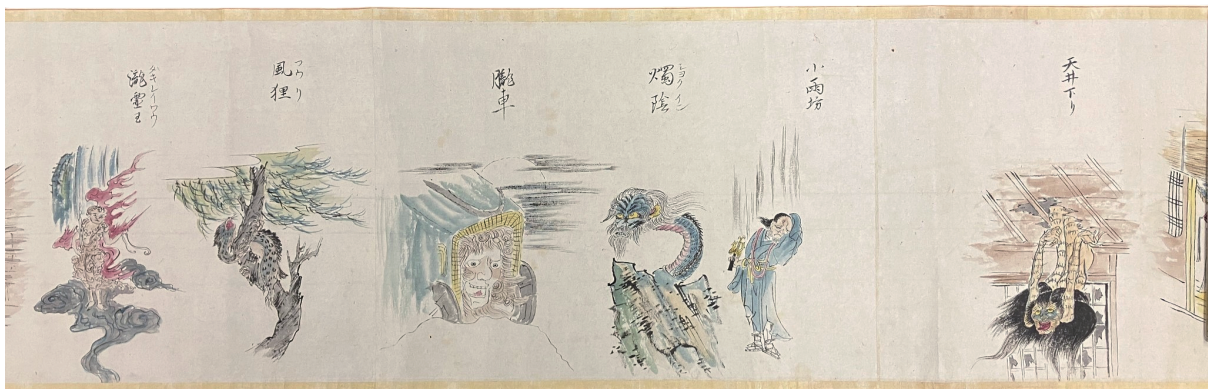 天井下り
小雨坊
燭陰
ショクイン
朧車
風狸
フウリ
瀧霊王